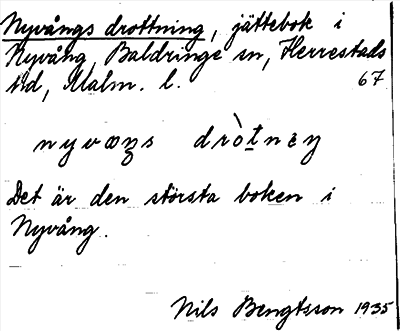 Nyvångs drottning, jättebok i
Nyvång, Baldringe sn, Herrestads
hd, Malm. l. 67
Det är den största boken i
Nyvång.
Nils Bengtsson 1935